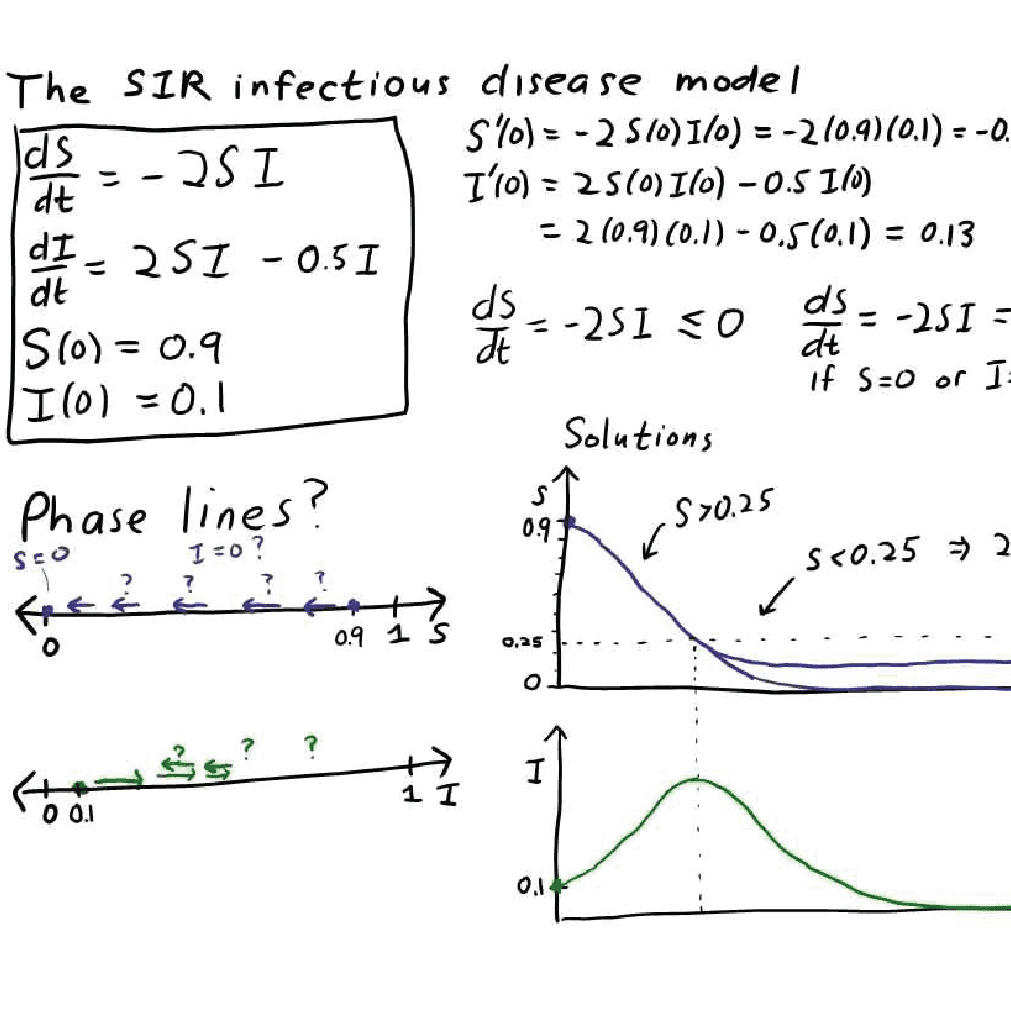 The SIR infectious disease model
dS/dt = -2SI
dI/dt = 2SI - 0.5I
S(0) = 0.9
I(0) = 0.1
S'(0) = -2 S(0) I(0) = -2(0.9)(0.1) = -0.
I'(0) = 2 S(0) I(0) - 0.5 I(0)
= 2(0.9)(0.1) - 0.5(0.1) = 0.13
dS/dt = -2SI ≤ 0
dS/dt = -2SI =
If S=0 or I=
Phase lines?
S=0 I=0?
? ? ? ?
0 0.9 1 S
? ? ?
0 0.1 1 I
Solutions
S
0.9
S>0.25
S<0.25 ⇒ 2
0.25
0
I
0.1